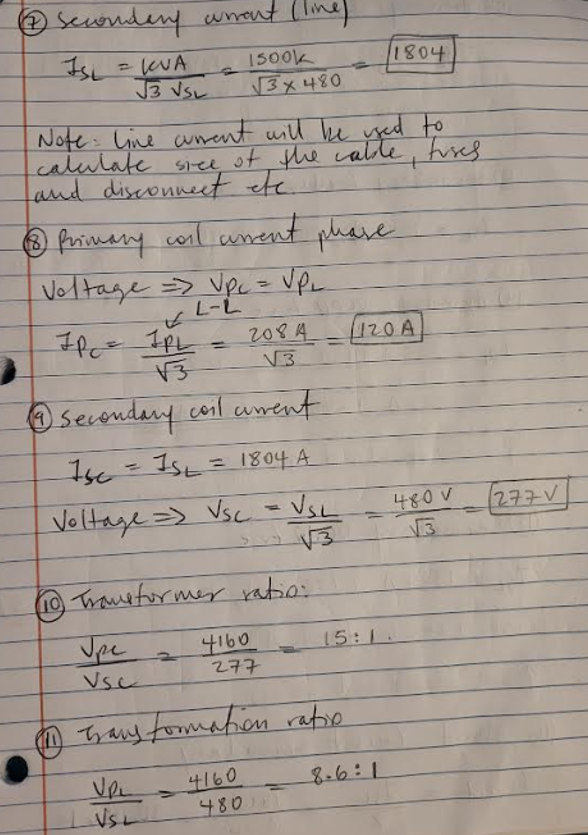 ⑦ Secondary current (line)
I_SL = kVA / √3 V_SL = 1500k / √3 x 480 = 1804
Note: Line current will be used to
calculate size of the cable, fuses
and disconnect etc
⑧ Primary coil current phase
Voltage => V_PC = V_PL
L-L
I_PC = I_PL / √3 = 208 A / √3 = 120 A
⑨ Secondary coil current
I_SC = I_SL = 1804 A
Voltage => V_SC = V_SL / √3 = 480 V / √3 = 277 V
⑩ Transformer ratio:
V_PC / V_SC = 4160 / 277 = 15:1.
⑪ Transformation ratio
V_PL / V_SL = 4160 / 480 = 8.6:1